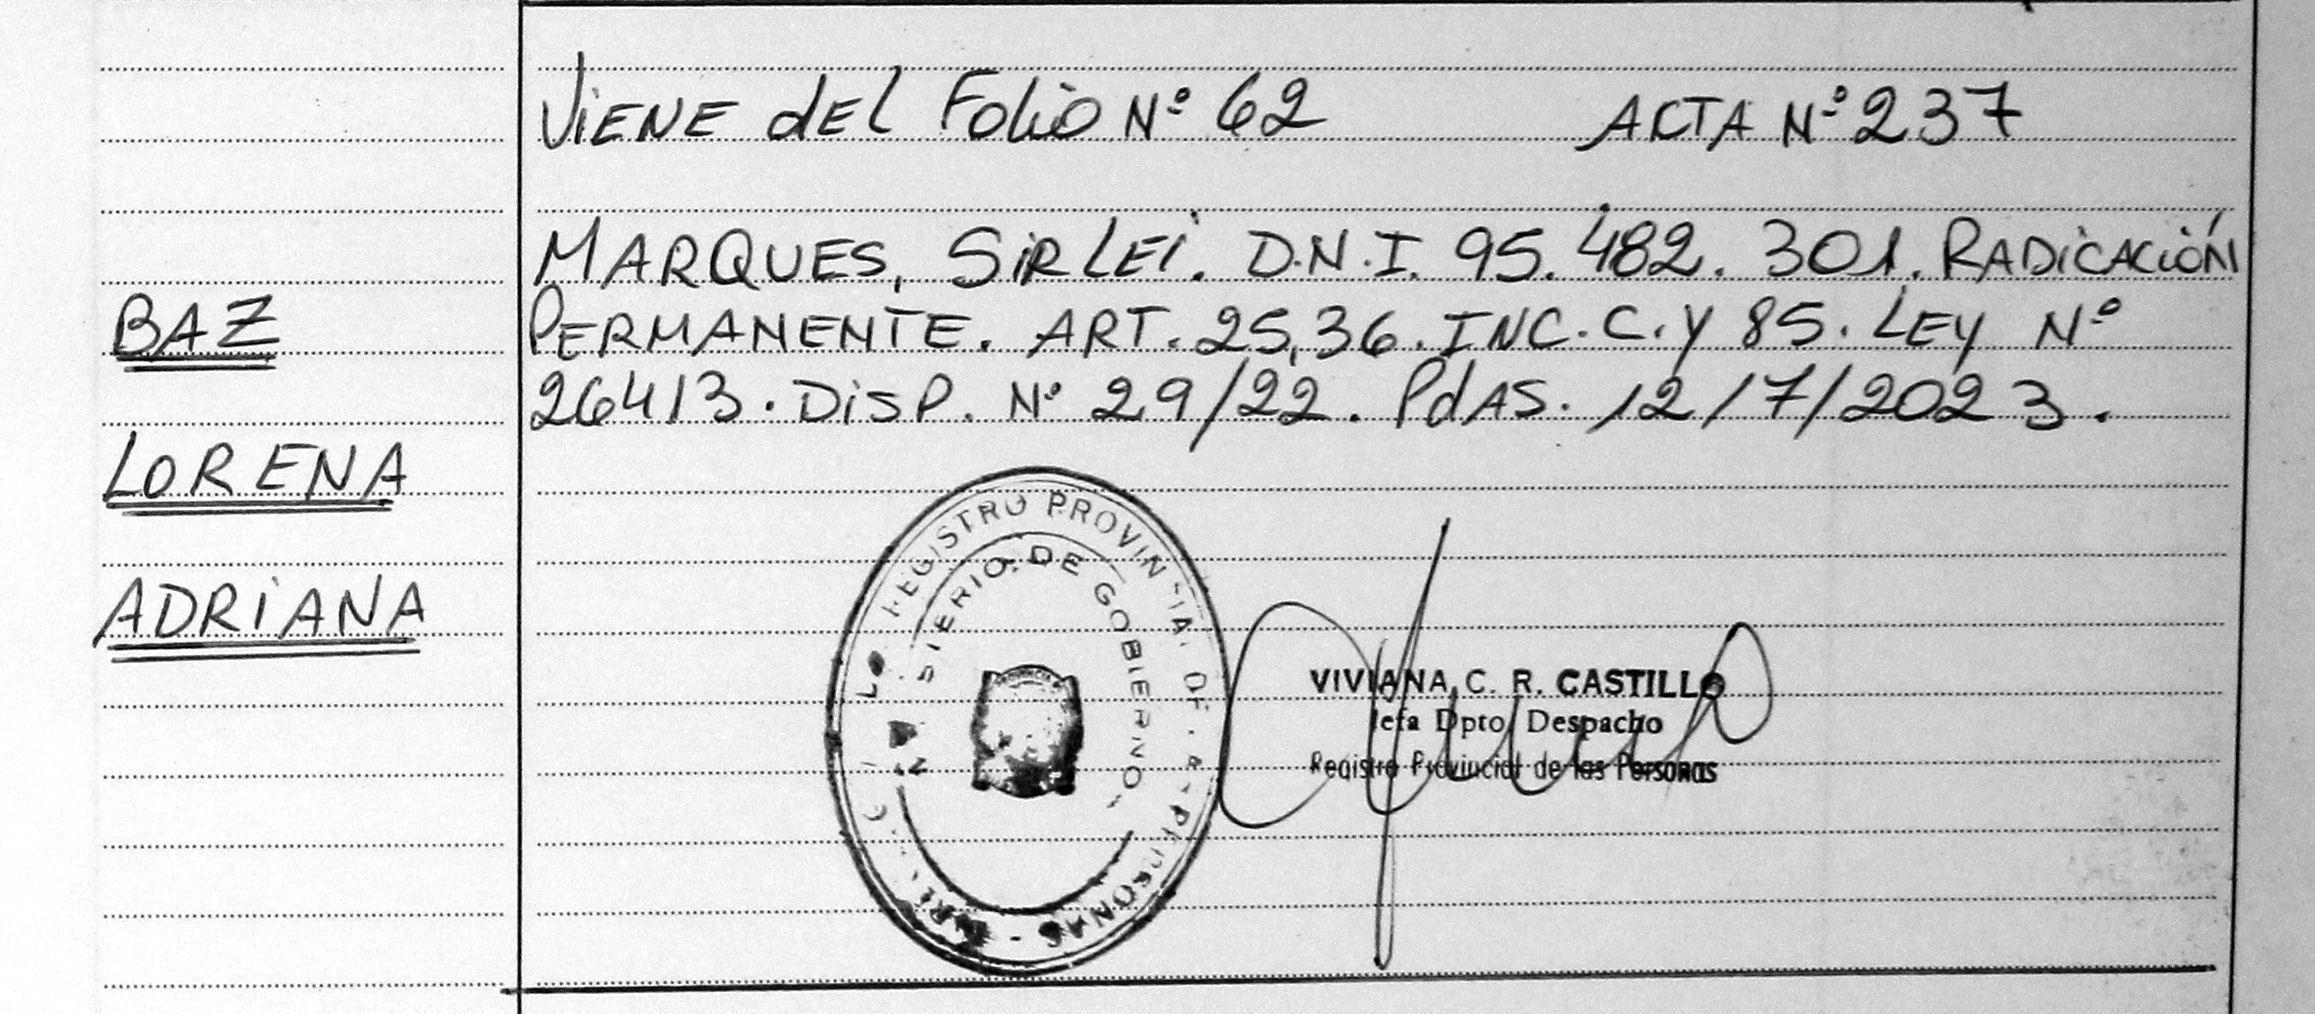 ViENE dEL Folio Nº 62 ACTA Nº 237
MARQUES, SiRLEi. D.N.I. 95.482.301. RADiCACiÓN
PERMANENTE. ART. 25,36. INC. C. Y 85. LEY Nº
26413. DiSP. Nº 29/22. PdAS. 12/7/2023.
BAZ
LORENA
ADRiANA
REGISTRO PROVINCIAL DE PERSONAS
DE GOBIERNO
VIVIANA C. R. CASTILLO
Jefa Dpto Despacho
Registro Provincial de las Personas